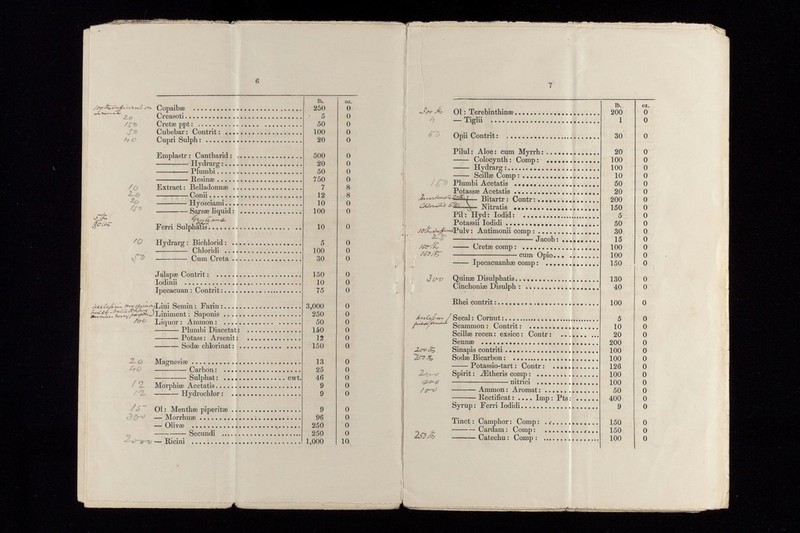 6
lb. oz.
Copaibæ 250 0
20 Creasoti 5 0
150 Cretæ ppt: 50 0
50 Cubebar: Contrit: 100 0
40 Cupri Sulph: 20 0
Emplastr: Cantharid: 500 0
Hydrarg: 20 0
Plumbi 50 0
Resinæ 750 0
10 Extract: Belladonnæ 7 8
20 Conii 12 8
20 Hyoscíami 10 0
150 Sarsæ liquid: 100 0
Ferri Sulphatis 10 0
10 Hydrarg: Bichlorid: 5 0
Chloridi 100 0
50 Cum Creta 30 0
Jalapæ Contrit: 150 0
Iodinii 10 0
Ipecacuan: Contrit: 75 0
Lini Semin: Farin: 3,000 0
Liniment: Saponis 250 0
100 Liquor: Ammon: 50 0
Plumbi Diacetat: 150 0
Potass: Arsenit: 12 0
Sodæ chlorinat: 150 0
20 Magnesiæ 13 0
40 Carbon: 25 0
Sulphat: cwt. 46 0
12 Morphiæ Acetatis 9 0
12 Hydrochlor: 9 0
15 Ol: Menthæ piperitæ 9 0
300 — Morrhuæ 96 0
— Olivæ 250 0
Secundi 250 0
2000 — Ricini 1,000 10
7
lb. oz.
Ol: Terebinthinæ 200 0
4 — Tiglii 1 0
60 Opii Contrit: 30 0
Pilul: Aloe: cum Myrrh: 20 0
Colocynth: Comp: 100 0
Hydrarg: 100 0
Scillæ Comp: 10 0
150 Plumbi Acetatis 50 0
Potassæ Acetatis 20 0
Bitartr: Contr: 200 0
Nitratis 150 0
Pil: Hyd: Iodid: 5 0
Potassii Iodidi 50 0
Pulv: Antimonii comp: 30 0
25 Jacob: 15 0
Cretæ comp: 100 0
cum Opio 100 0
Ipecacuanhæ comp: 150 0
300 Quinæ Disulphatis 130 0
Cinchoniæ Disulph: 40 0
Rhei contrit: 100 0
Secal: Cornut: 5 0
Scammon: Contrit: 10 0
Scillæ recen: exsicc: Contr: 20 0
Sennæ 200 0
Sinapis contriti 100 0
Sodæ Bicarbon: 100 0
Potassio-tart: Contr: 126 0
Spirit: Ætheris comp: 100 0
nitrici 100 0
100 Ammon: Aromat: 50 0
Rectificat: Imp: Pts: 400 0
Syrup: Ferri Iodidi 9 0
Tinct: Camphor: Comp: 150 0
Cardam: Comp: 150 0
250 lb Catechu: Comp: 100 0